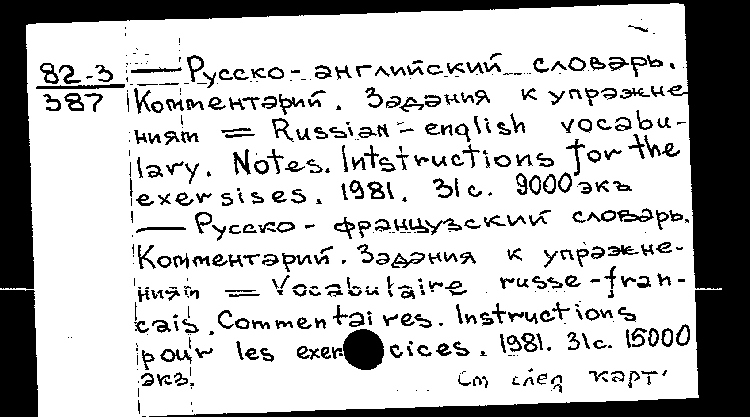 82-3 — Русско-английский словарь.
387 Комментарий. Задания к упражне
ниям = Russian-english vocabu-
lary. Notes. Intstructions for the
exersises. 1981. 31с. 9000 экз
— Русско-французский словарь.
Комментарий. Задания к упражне-
ниям = Vocabulaire russe-fran-
cais. Commentaires. Instructions
pour les exercices. 1981. 31с. 15000
экз.
См след карт.